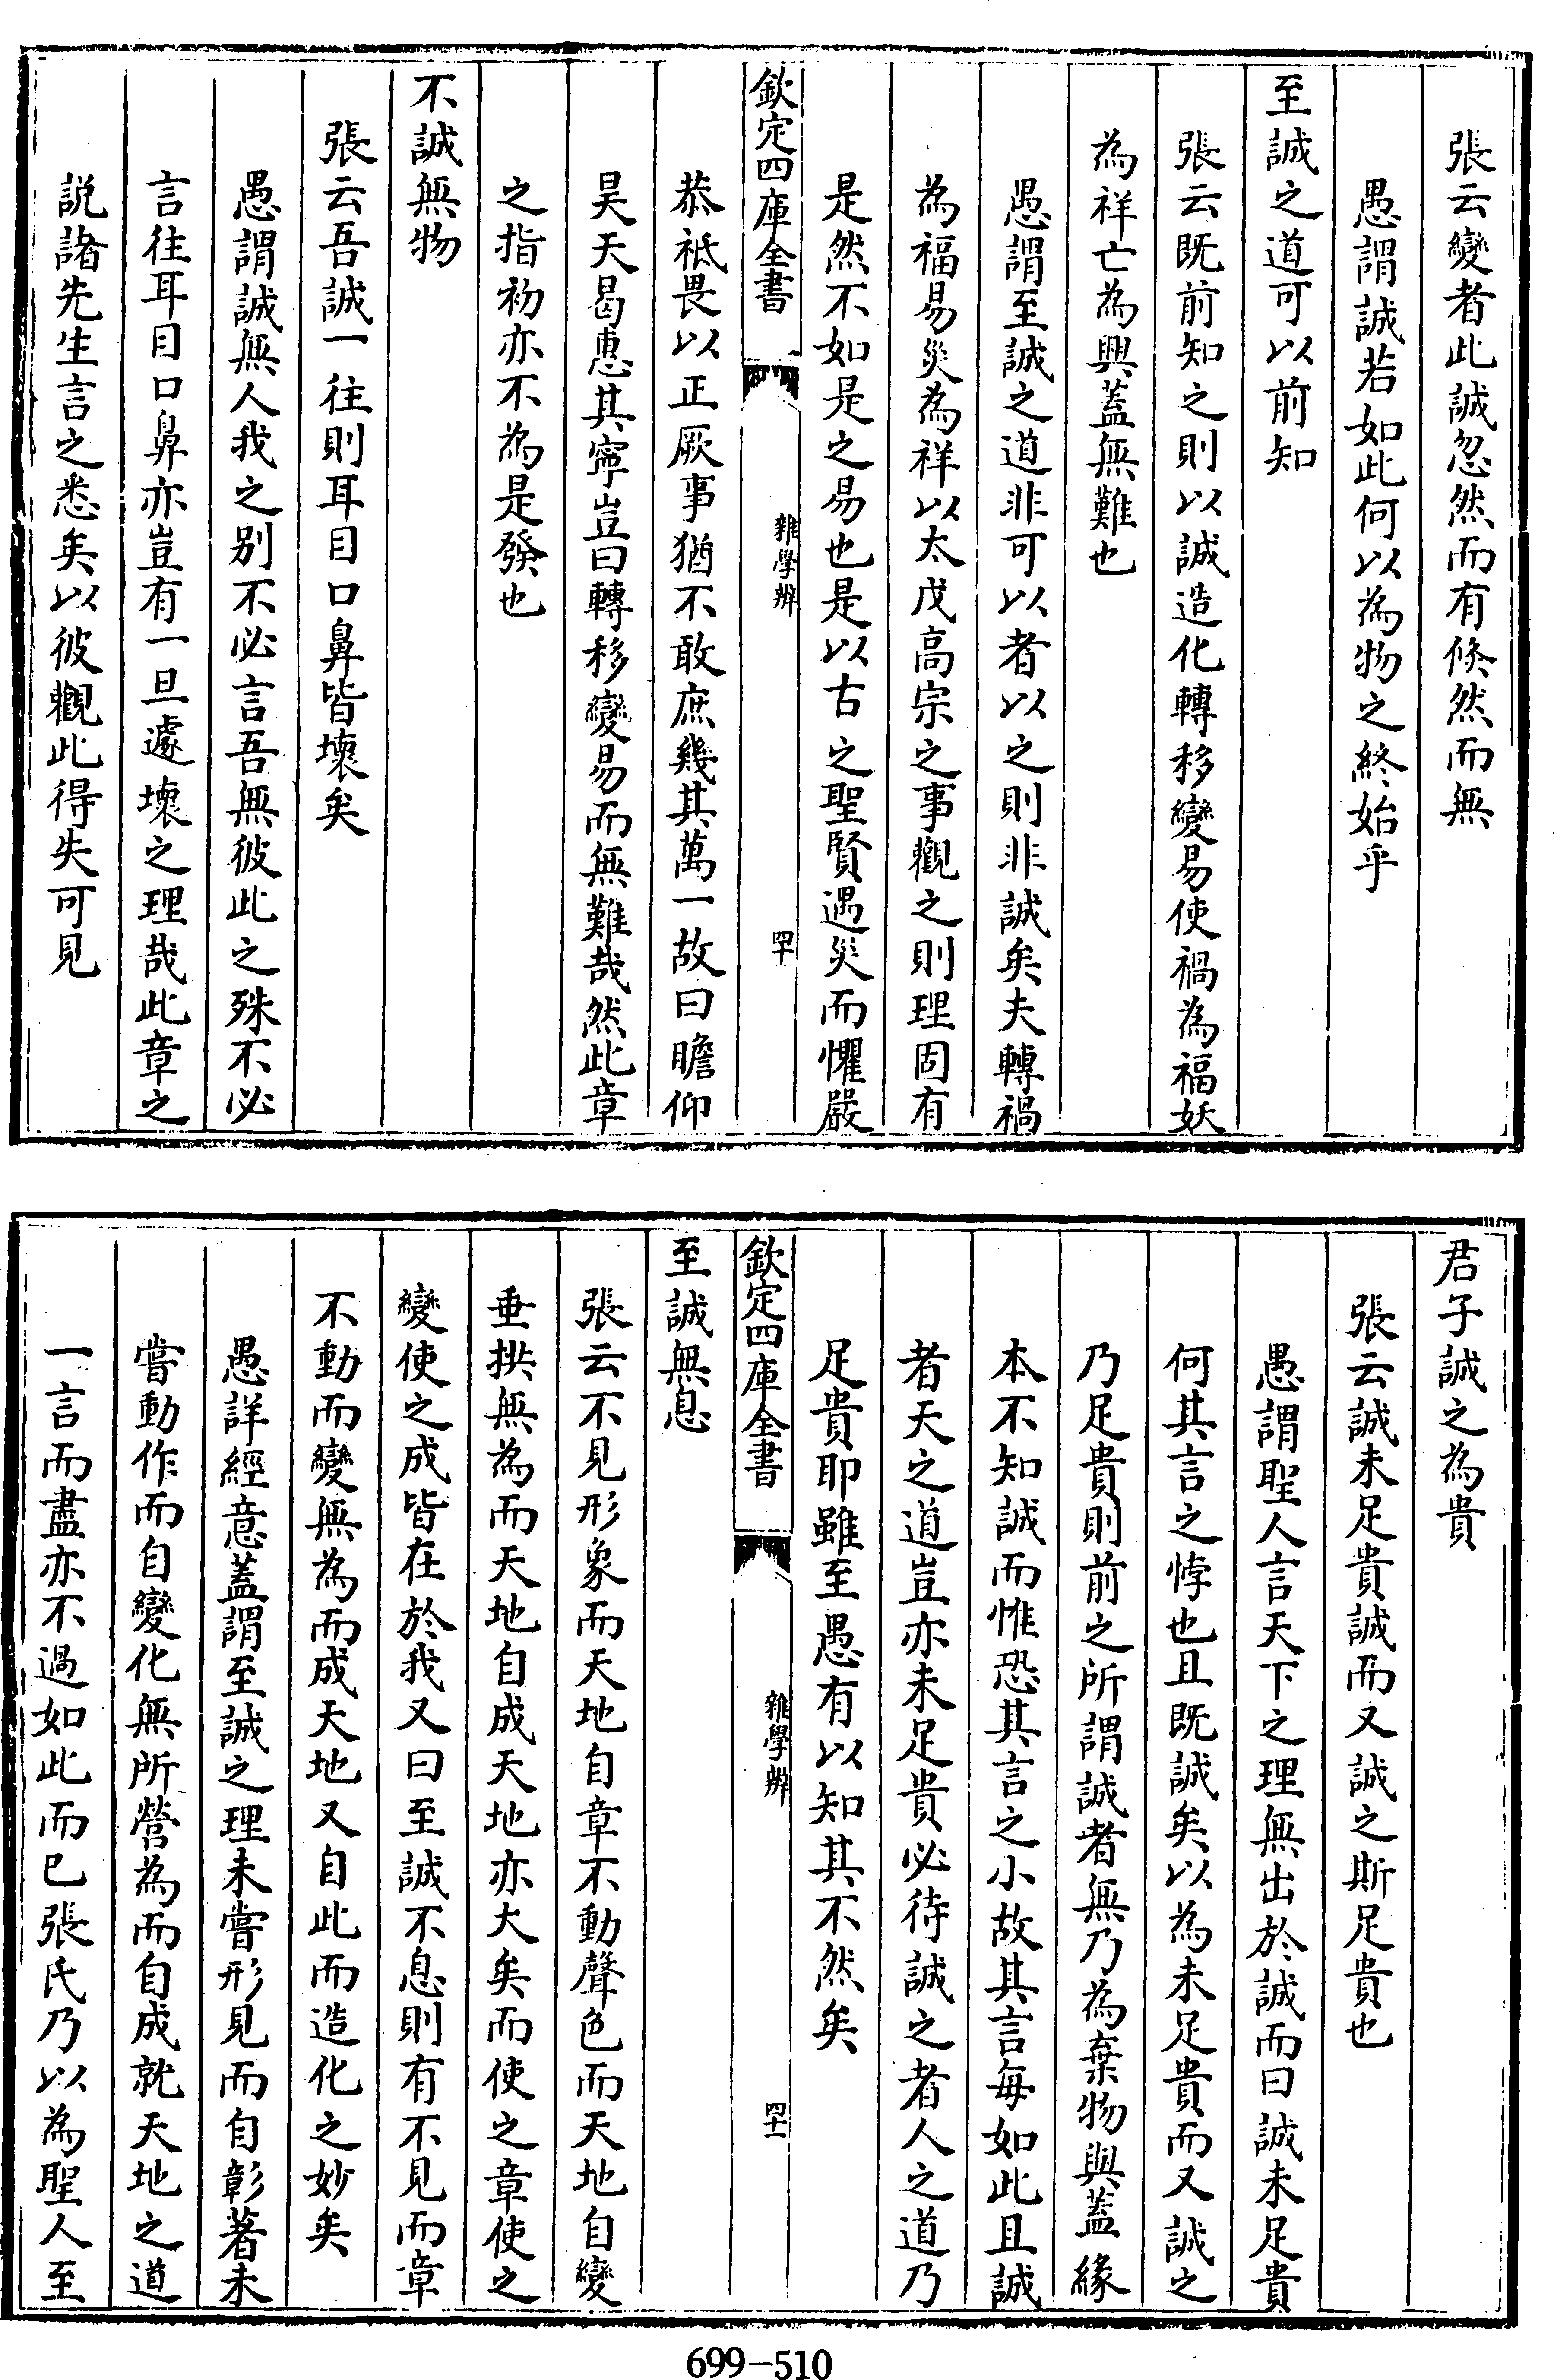 張云變者此誠忽然而有倏然而無
愚謂誠若如此何以為物之終始乎
至誠之道可以前知
張云既前知之則以誠造化轉移變易使禍為福妖
為祥亡為興蓋無難也
愚謂至誠之道非可以者以之則非誠矣夫轉禍
為福易災為祥以太戊高宗之事觀之則理固有
是然不如是之易也是以古之聖賢遇災而懼嚴
欽定四庫全書
雜學辨
四十
恭祗畏以正厥事猶不敢庶幾其萬一故曰瞻仰
昊天曷惠其寧豈曰轉移變易而無難哉然此章
之指初亦不為是發也
不誠無物
張云吾誠一往則耳目口鼻皆壞矣
愚謂誠無人我之别不必言吾無彼此之殊不必
言往耳目口鼻亦豈有一旦遽壞之理哉此章之
説諸先生言之悉矣以彼觀此得失可見
君子誠之為貴
張云誠未足貴誠而又誠之斯足貴也
愚謂聖人言天下之理無出於誠而曰誠未足貴
何其言之悖也且既誠矣以為未足貴而又誠之
乃足貴則前之所謂誠者無乃為棄物與蓋緣
本不知誠而惟恐其言之小故其言每如此且誠
者天之道豈亦未足貴必待誠之者人之道乃
足貴耶雖至愚有以知其不然矣
欽定四庫全書
雜學辨
四十一
至誠無息
張云不見形象而天地自章不動聲色而天地自變
垂拱無為而天地自成天地亦大矣而使之章使之
變使之成皆在於我又曰至誠不息則有不見而章
不動而變無為而成天地又自此而造化之妙矣
愚詳經意蓋謂至誠之理未嘗形見而自彰著未
嘗動作而自變化無所營為而自成就天地之道
一言而盡亦不過如此而已張氏乃以為聖人至
699-510